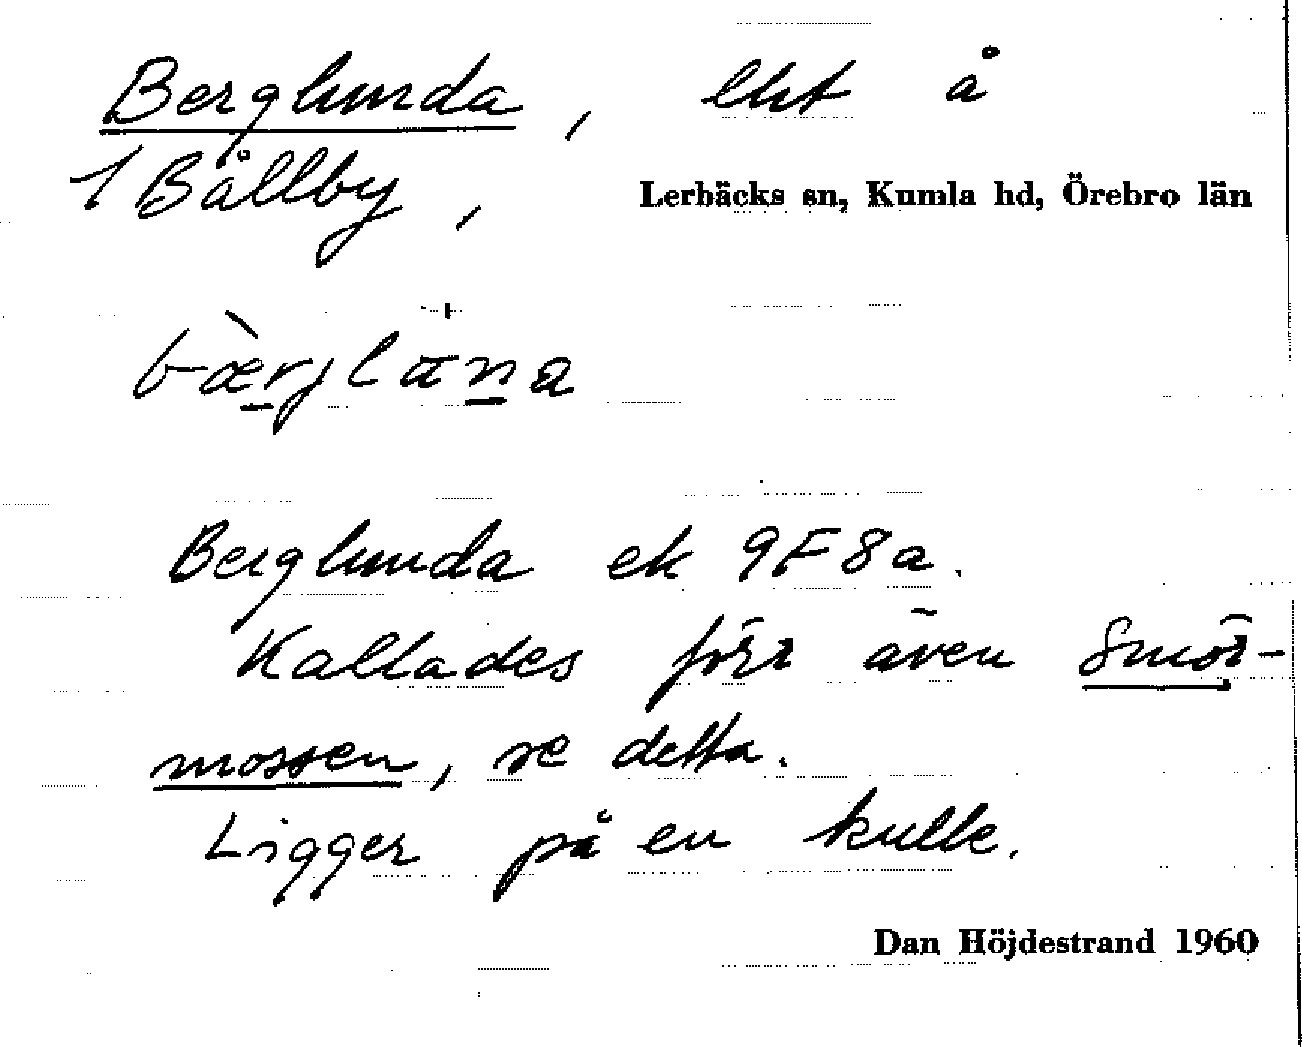 Berglunda, lht å
1 Bållby,
Lerbäcks sn, Kumla hd, Örebro län
Berglunda ek 9F8a.
Kallades förr även Smör-
mossen, se detta.
Ligger på en kulle.
Dan Höjdestrand 1960